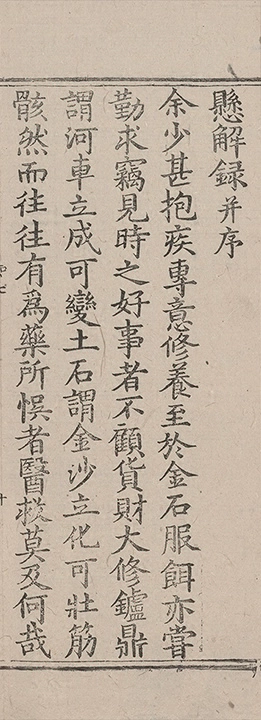 懸解録并序
余少甚抱疾專意修養至於金石服餌亦嘗
勤求竊見時之好事者不顧貨財大修鑪鼎
謂河車立成可變土石謂金沙立化可壯筋
骸然而往往有為藥所悞者醫救莫及何哉